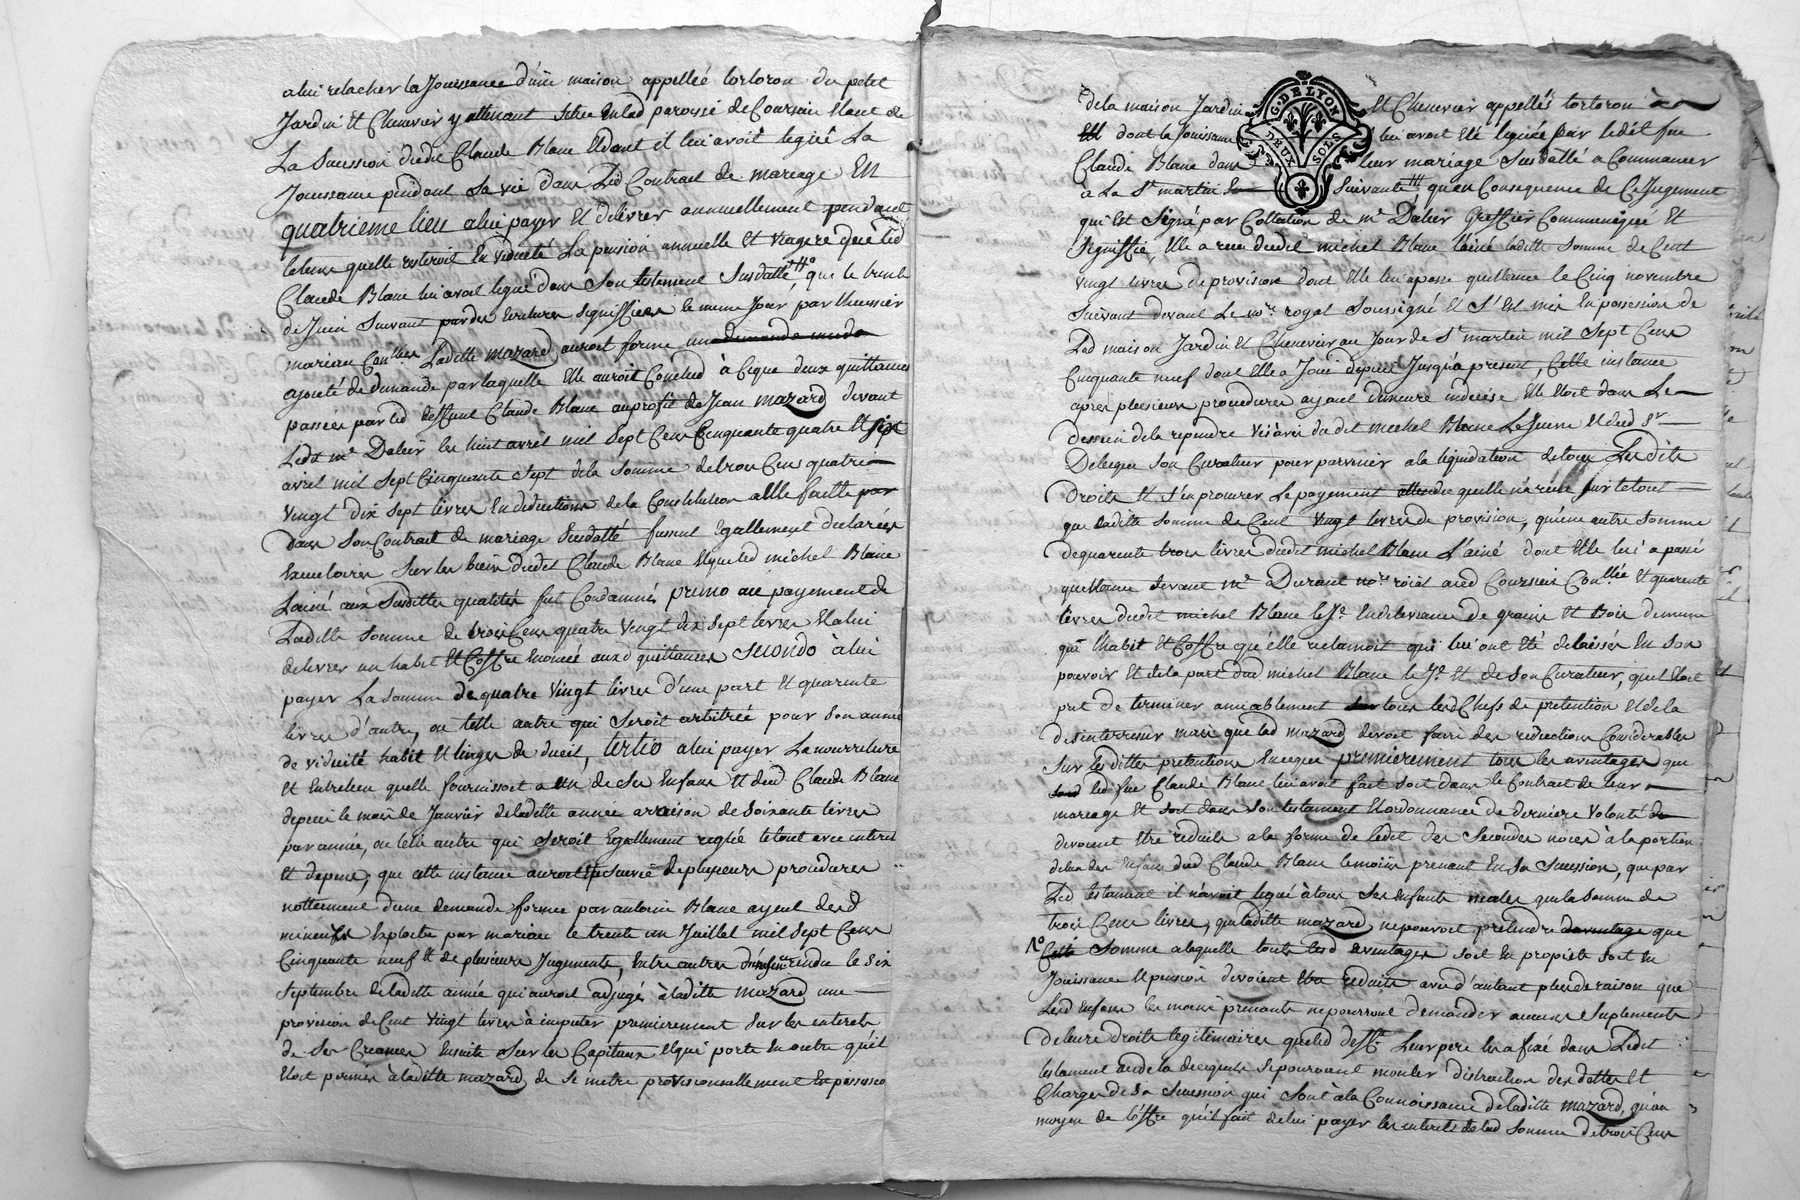 a lui relacher la Jouissance d'une maison appellée tortoron du petit
Jardin Et Chenevier y attenant Scitué En lad paroisse de Coursieu Etant de
La Succession dudit Claude Blanc Et dont il lui avoit legué La
Jouissance pendant Sa vie dans Led Contrat de mariage En
quatrieme lieu a lui payer Et delivrer annuellement pendant
le tems quelle resteroit En viduité La pension annuelle Et viagere que led
Claude Blanc lui avoit legué dans Son testement Susdatté, que le trente
de Juin Suivant par des Ecritures Signiffiées le meme Jour, par L'huissier
mariau Con^llées Laditte mazard auroit formé
ajouté de demande par laquelle Elle auroit Conclud à Ce que deux quittances
passées par led deffunt Claude Blanc au profit de Jean mazard devant
Ledit m^e Dalier les huit avril mil Sept Cens Cinquante quatre Et Sept
avril mil Sept Cinquante Sept de la Somme de trois Cens quatre
vingt dix Sept livres En deductions de la Constitution a Elle faitte par
dans Son Contrat de mariage Susdatté fussent Egallement declarées
Executoires Sur les biens dudit Claude Blanc Et que led michel Blanc
L'ainé aux Susdittes qualités fut Condamné primo au payement de
Laditte Somme de trois Cens quatre vingt dix Sept livres Et a lui
delivrer un habit Et Coffre Enoncés aux d quittances Secondo à lui
payer La Somme de quatre vingt livres d'une part Et quarente
livres d'autre, ou telle autre qui Seroit arbitrée pour Son année
de viduité habit Et linges de dueil, tertio a lui payer La nourriture
Et Entretien quelle fournissoit a un de Ses Enfans Et dud Claude Blanc
depuis le mois de Janvier de laditte année a raison de Soixante livres
par année, ou telle autre qui Seroit Egallement reglée le tout avec interet
Et depens; que cette instance auroit Eté Suivie de plusieurs procedures
nottemment d'une demande formée par antoine Blanc ayeul desd
mineurs Exploitée par mariau le trente un Juillet mil Sept Cens
Cinquante neuf Et de plusieurs Jugements, Entre autres d'un rendu le Six
Septembre de laditte année qui auroit adjugé à laditte mazard une
provision de Cent vingt livres à imputer premierement Sur les interets
de Ses Creances Ensuite Sur les Capitaux Et qui porte En outre qu'il
Etoit permis à laditte mazard de Se mettre provisionnellement En possession
G. DE LYON
DEUX SOLS
de la maison Jardin Et Chenevier appellés tortoron
dont la Jouissance lui avoit Eté leguée par ledit feu
Claude Blanc dans leur mariage Susdatté a Commancer
à La S^t martin Suivante qu'en Consequence de Ce Jugement
qui Est Signé par Collation de m^e Dalier Greffier Communiqué Et
Signiffié, Elle a reçu dudit michel Blanc l'ainé laditte Somme de Cent
vingt livres de provision dont Elle lui a passé quittance le Cinq novembre
Suivant devant Le no^re royal Soussigné Et S'Est mis En possession de
Lad maison Jardin Et Chenevier au Jour de S^t martin mil Sept Cens
Cinquante neuf dont Elle a Joui depuis Jusqu'a present, Cette instance
apres plusieurs procedures ayant demeuré indecise Elle Etoit dans Le
dessein de la reprendre vis à vis dudit michel Blanc Le Jeune Et dud S^r
Delegue Son Curateur pour parvenir a la liquidation de tous Lesdits
droits Et S'en procurer Le payement attendu quelle n'a reçu Sur le tout
que laditte Somme de Cent vingt livres de provision, qu'une autre Somme
de quarente trois livres dudit michel Blanc L'ainé dont Elle lui a passé
quittance devant m^e Durant no^re roial aud Coursieu Con^llée Et quarente
livres dudit michel Blanc le J^e En delivrance de grains Et Bois de meme
que L'habit Et Coffre qu'elle reclamoit qui lui ont Eté delaissés En Son
pouvoir Et de la part dud michel Blanc le J^e Et de Son Curateur, quil Etoit
pret de terminer amiablement tous lesd Chefs de pretention Et de la
desinteresser mais que lad mazard devoit faire des reductions Considerables
Sur lesdittes pretentions En ce que premierement tous les avantages que
led feu Claude Blanc lui avoit fait Soit dans le Contrat de leur
mariage Et Soit dans Son testament Et ordonnance de derniere volonté
devoient Etre reduits a la forme de Ledit des Secondes noces à la portion
de l'un des Enfans dud Claude Blanc le moins prenant En Sa Succession, que par
Led testament il n'avoit legué à tous Ses Enfants males que la Somme de
trois Cens livres, que laditte mazard ne pouvoit pretendre davantage que
Cette Somme a laquelle touts lesd avantages Soit En propieté Soit En
Jouissance Et pension devoient Etre reduits avec d'autant plus de raison que
Lesd Enfans les moins prenants ne pourront demander aucuns Suplements
de leurs droits legitimaires que led deff^t Leur pere les a fixé dans Ledit
testament Au dela desquels Se pourroient monter distraction des dettes Et
Charges de Sa Succession qui Sont à la Connoissance de laditte mazard, qu'au
moyen de L'offre qu'il fait de lui payer les interets de lad Somme de trois Cens